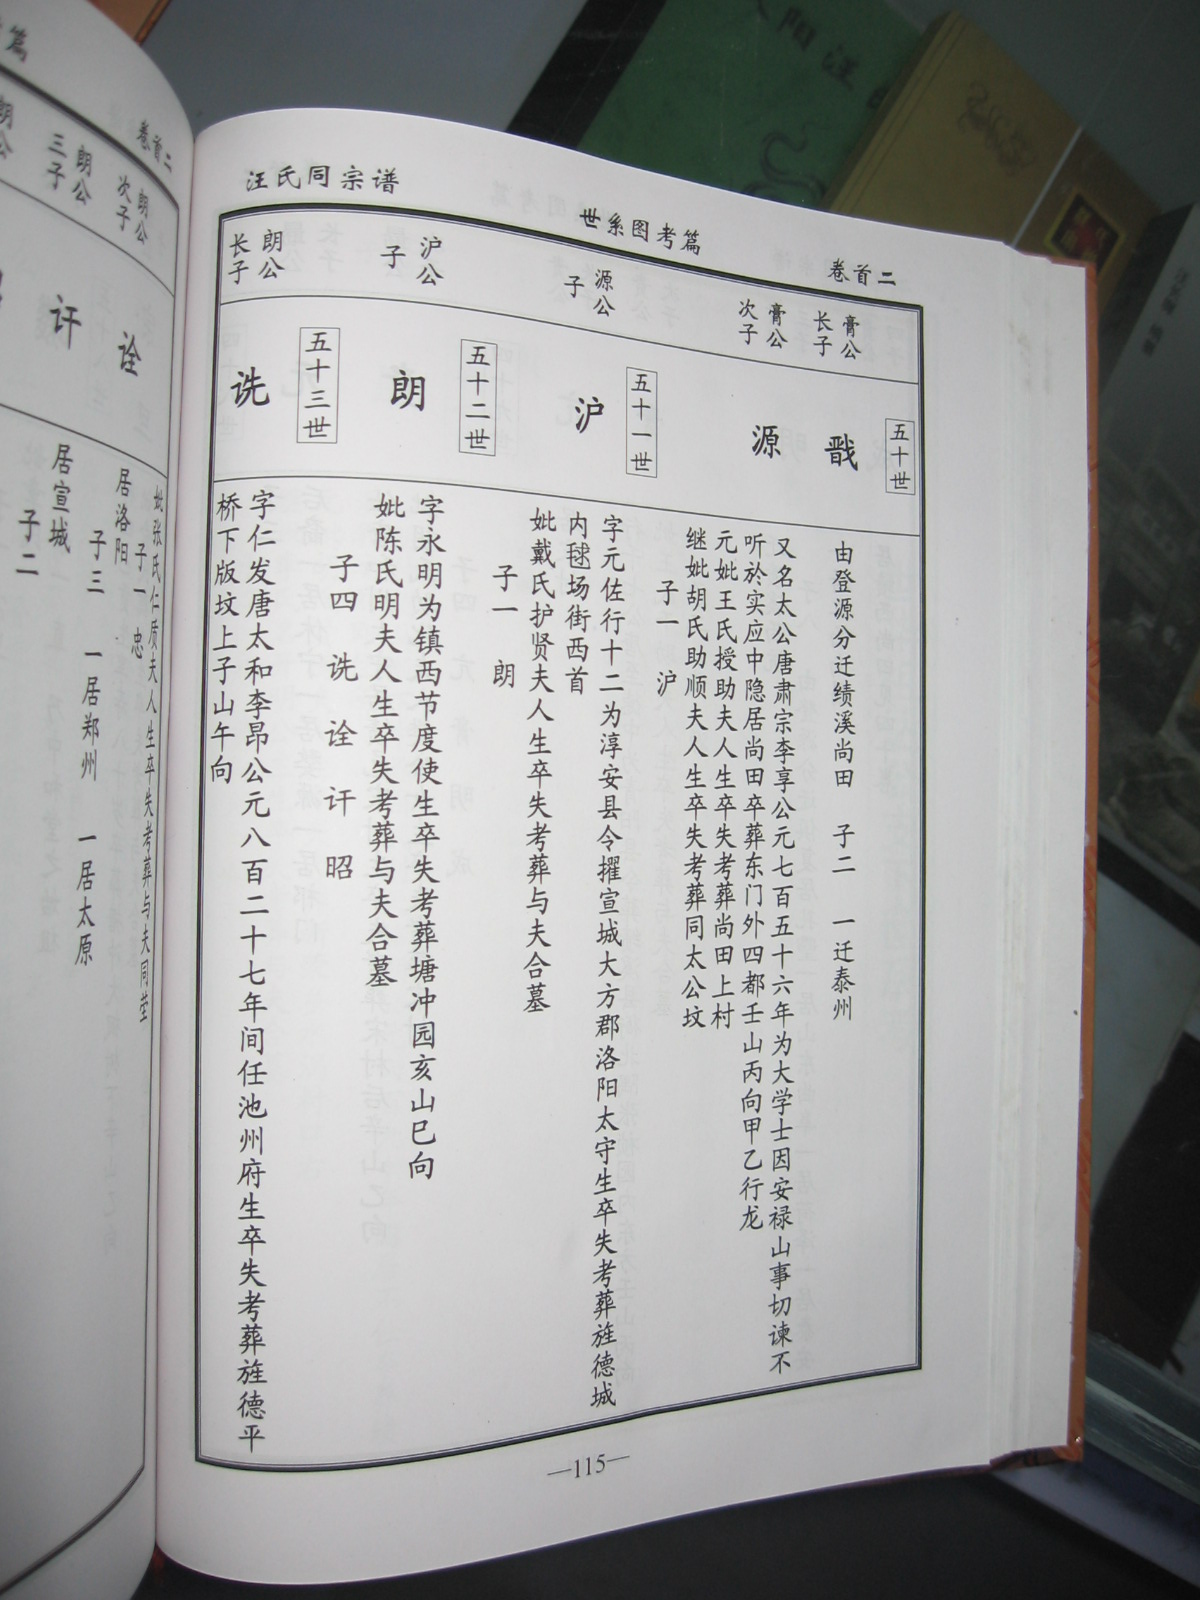 汪氏同宗谱
世系图考篇
卷首二
五十世
膏公
长子
戬
由登源分迁绩溪尚田 子二 一迁泰州
膏公
次子
源
又名太公唐肃宗李享公元七百五十六年为大学士因安禄山事切谏不
听於实应中隐居尚田卒葬东门外四都壬山丙向甲乙行龙
元妣王氏授助夫人生卒失考葬尚田上村
继妣胡氏助顺夫人生卒失考葬同太公坟
子一 沪
五十一世
源公
子
沪
字元佐行十二为淳安县令擢宣城大方郡洛阳太守生卒失考葬旌德城
内毬场街西首
妣戴氏护贤夫人生卒失考葬与夫合墓
子一 朗
五十二世
沪公
子
朗
字永明为镇西节度使生卒失考葬塘冲园亥山巳向
妣陈氏明夫人生卒失考葬与夫合墓
子四 诜 诠 讦 昭
五十三世
朗公
长子
诜
字仁发唐太和李昂公元八百二十七年间任池州府生卒失考葬旌德平
桥下版坟上子山午向
—115—
卷首二
妣张氏仁质夫人生卒失考葬与夫同茔
子一 忠
朗公
次子
诠
居洛阳
子三 一居郑州 一居太原
朗公
三子
讦
居宣城
子二
朗公
篇